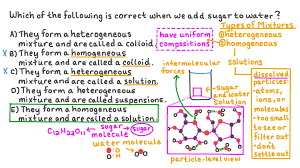 Which of the following is correct when we add sugar to water?
A) They form a heterogeneous
mixture and are called a colloid.
X B) They form a homogeneous
mixture and are called a colloid.
X C) They form a heterogeneous
mixture and are called a solution.
D) They form a heterogeneous
mixture and are called suspensions.
E) They form a homogeneous
mixture and are called a solution.
have uniform
compositions
Types of Mixtures
①heterogeneous
②homogeneous
solutions
intermolecular
forces
sugar
and water
solution
dissolved
particles
atoms,
ions, or
molecules
too small
to see or
filter out
don't
settle out
C₁₂H₂₂O₁₁
sugar
molecule
sugar
water molecule
particle-level view